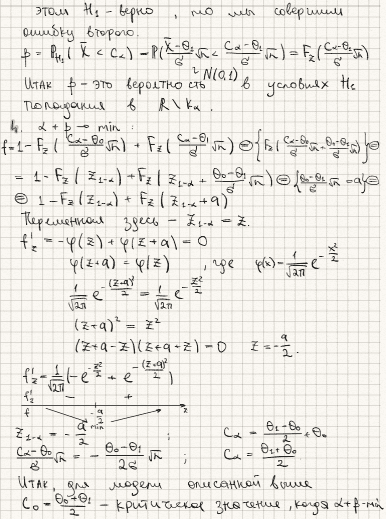 этом H₁ - верно, то мы совершим
ошибку второго.
β = P_{H₁}(X̄ < Cα) = P((X̄-θ₁)/σ √n < (Cα-θ₁)/σ √n) = F_z((Cα-θ₁)/σ √n)
N(0,1)
Итак β - это вероятность в условиях H₁
попадания в R \ Kα.
4. α + β → min :
f = 1 - F_z((Cα-θ₀)/σ √n) + F_z((Cα-θ₁)/σ √n) ⊜ {F_z((Cα-θ₀)/σ √n + (θ₀-θ₁)/σ √n)} ⊜
= 1 - F_z(z₁₋α) + F_z(z₁₋α + (θ₀-θ₁)/σ √n) ⊜ {(θ₀-θ₁)/σ √n = a} ⊜
⊜ 1 - F_z(z₁₋α) + F_z(z₁₋α + a)
Переменная здесь - z₁₋α = z.
f'_z = -φ(z) + φ(z+a) = 0
φ(z+a) = φ(z) , где φ(x) = 1/√2π e^{-x²/2}
1/√2π e^{-(z+a)²/2} = 1/√2π e^{-z²/2}
(z+a)² = z²
(z+a-z)(z+a+z) = 0 z = -a/2.
f'_z = 1/√2π (-e^{-z²/2} + e^{-(z+a)²/2})
f'_z - + 
f -a/2 min z
z₁₋α = -a/2 ; Cα = (θ₁-θ₀)/2 + θ₀
(Cα-θ₀)/σ √n = -(θ₀-θ₁)/2σ √n ; Cα = (θ₁+θ₀)/2
Итак, для модели описанной выше
C₀ = (θ₀+θ₁)/2 - критическое значение, когда α+β-min